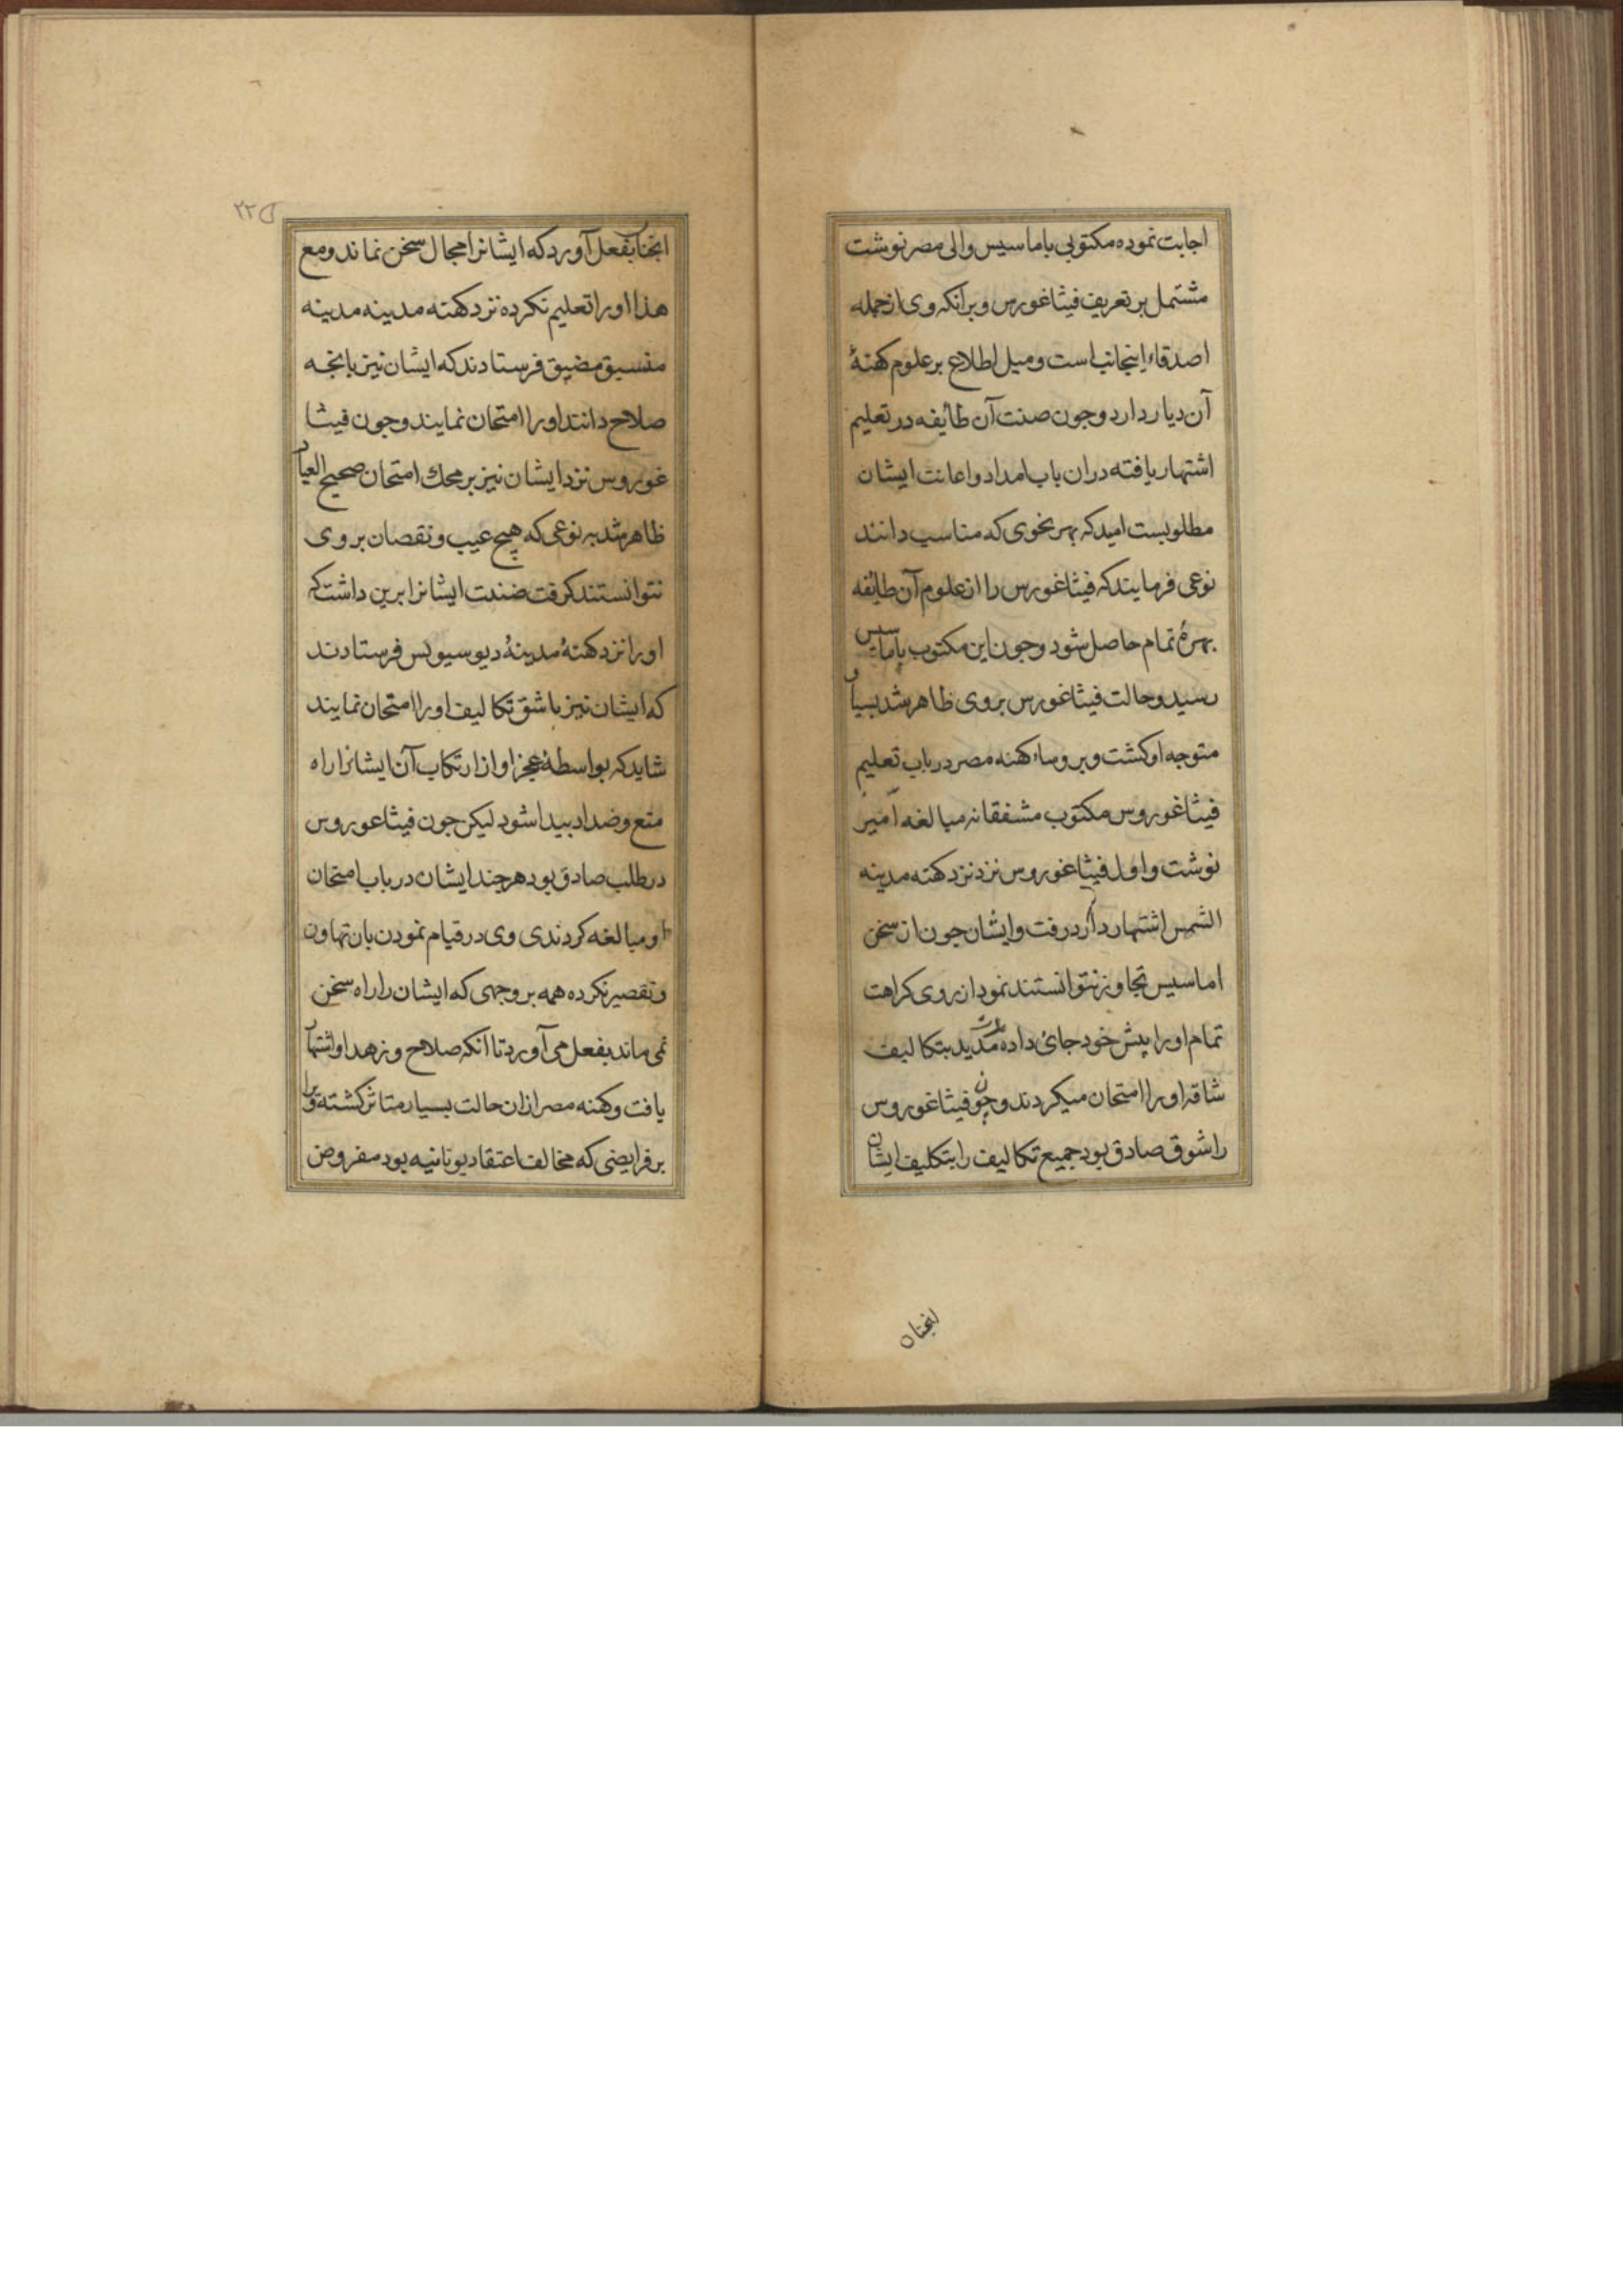 اجابت نموده مکتوبی باماسیس والی مصر نوشت
مشتمل بر تعریف فیثاغورس و برانکه وی از جمله
اصدقاء اینجانب است و میل اطلاع بر علوم کهنهٔ
آن دیار دارد و جون صنت آن طایفه در تعلیم
اشتهار یافته دران باب امداد و اعانت ایشان
مطلوبست امید که بهر نحوی که مناسب دانند
نوعی فرمایند که فیثاغورس را از علوم آن طایفه
بهرهٔ تمام حاصل شود و جون این مکتوب باماسیس
رسید و حالت فیثاغورس بر وی ظاهر شد بسیار
متوجه او کشت و بر وساء کهنه مصر در باب تعلیم
فیثاغوروس مکتوب مشفقانه مبالغه آمیز
نوشت و اول فیثاغوروس نزد نزد کهنه مدینه
الشمس اشتهار دارد رفت و ایشان جون از سخن
اماسیس تجاوز نتوانستند نمود از روی کراهت
تمام او را پیش خود جای داده مدت مدید بتکالیف
شاقه او را امتحان میکردند و چون فیثاغوروس
را شوق صادق بود جمیع تکالیف را بتکلیف ایشان
انجنان
۲۲۵
انجنان بفعل آورد که ایشانرا مجال سخن نماند و مع
هذا او را تعلیم نکرده نزد کهنه مدینه مدینه
منسیق مضیق فرستادند که ایشان نیز بانجه
صلاح دانند او را امتحان نمایند و جون فیثا
غوروس نزد ایشان نیز بر محک امتحان صحیح العیار
ظاهر شد به نوعی که هیچ عیب و نقصان بر وی
نتوانستند کرفت ضنت ایشانرا برین داشت که
او را نزد کهنهٔ مدینهٔ دیوسیولس فرستادند
که ایشان نیز باشق تکالیف او را امتحان نمایند
شاید که بواسطهٔ عجز او از ارتکاب آن ایشانرا راه
منع وضد او بیدا شود لیکن جون فیثاعوروس
در طلب صادق بود هر جند ایشان در باب امتحان
او مبالغه کردندی وی در قیام نمودن بان تهاون
و تقصیر نکرده همه بر وجهی که ایشان را راه سخن
نمی ماند بفعل می آورد تا آنکه صلاح و زهد او اشتهار
یافت و کهنه مصر ازان حالت بسیار متاثر کشته ویرا
بر فرایضی که مخالف اعتقاد یونانیه بود مفروض